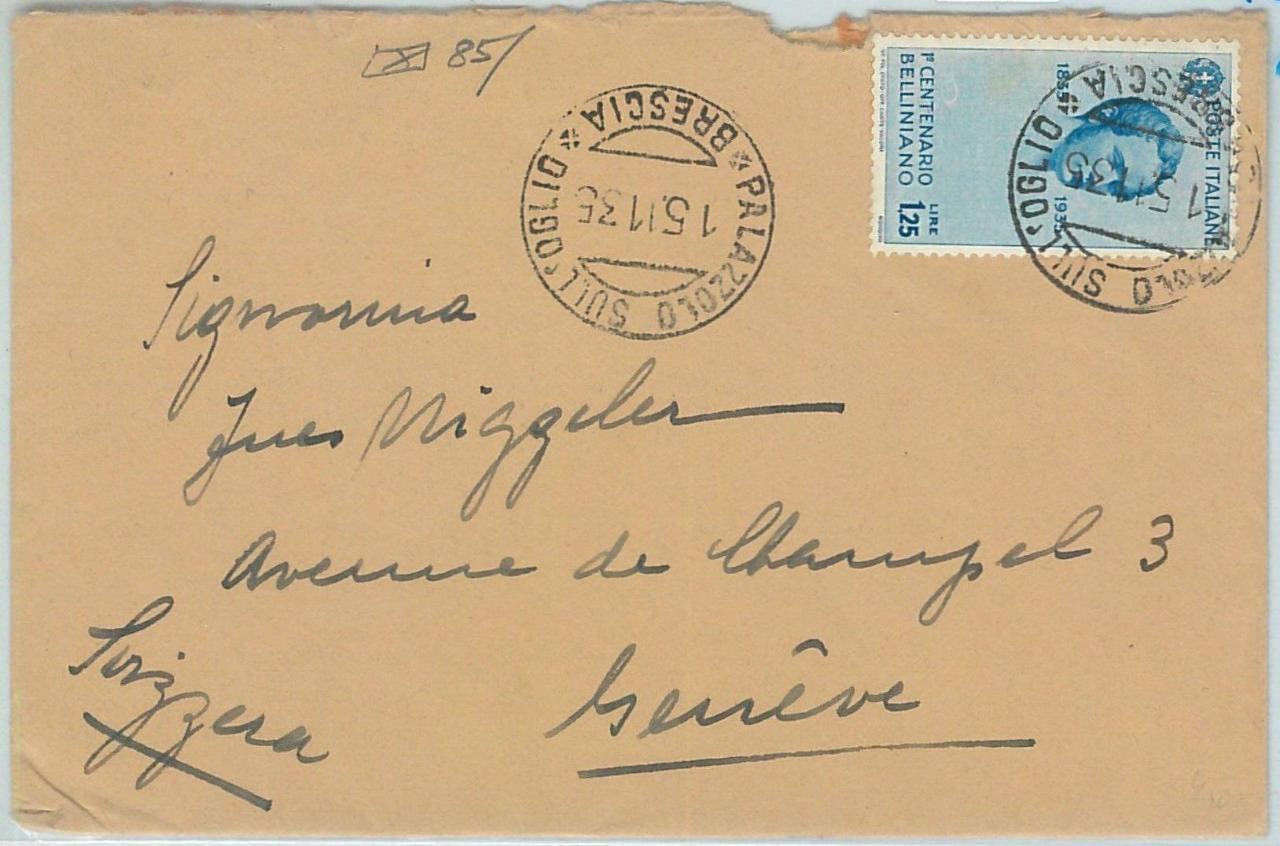 85/
PALAZZOLO SULL'OGLIO
BRESCIA
15.11.35
POSTE ITALIANE
1835 1935
1° CENTENARIO
BELLINIANO
LIRE
1.25
OLO SULL'OGLIO
BRESCIA
15.11.35
Signorina
Ines Niggeler
Avenue de Champel 3
Genêve
Svizzera